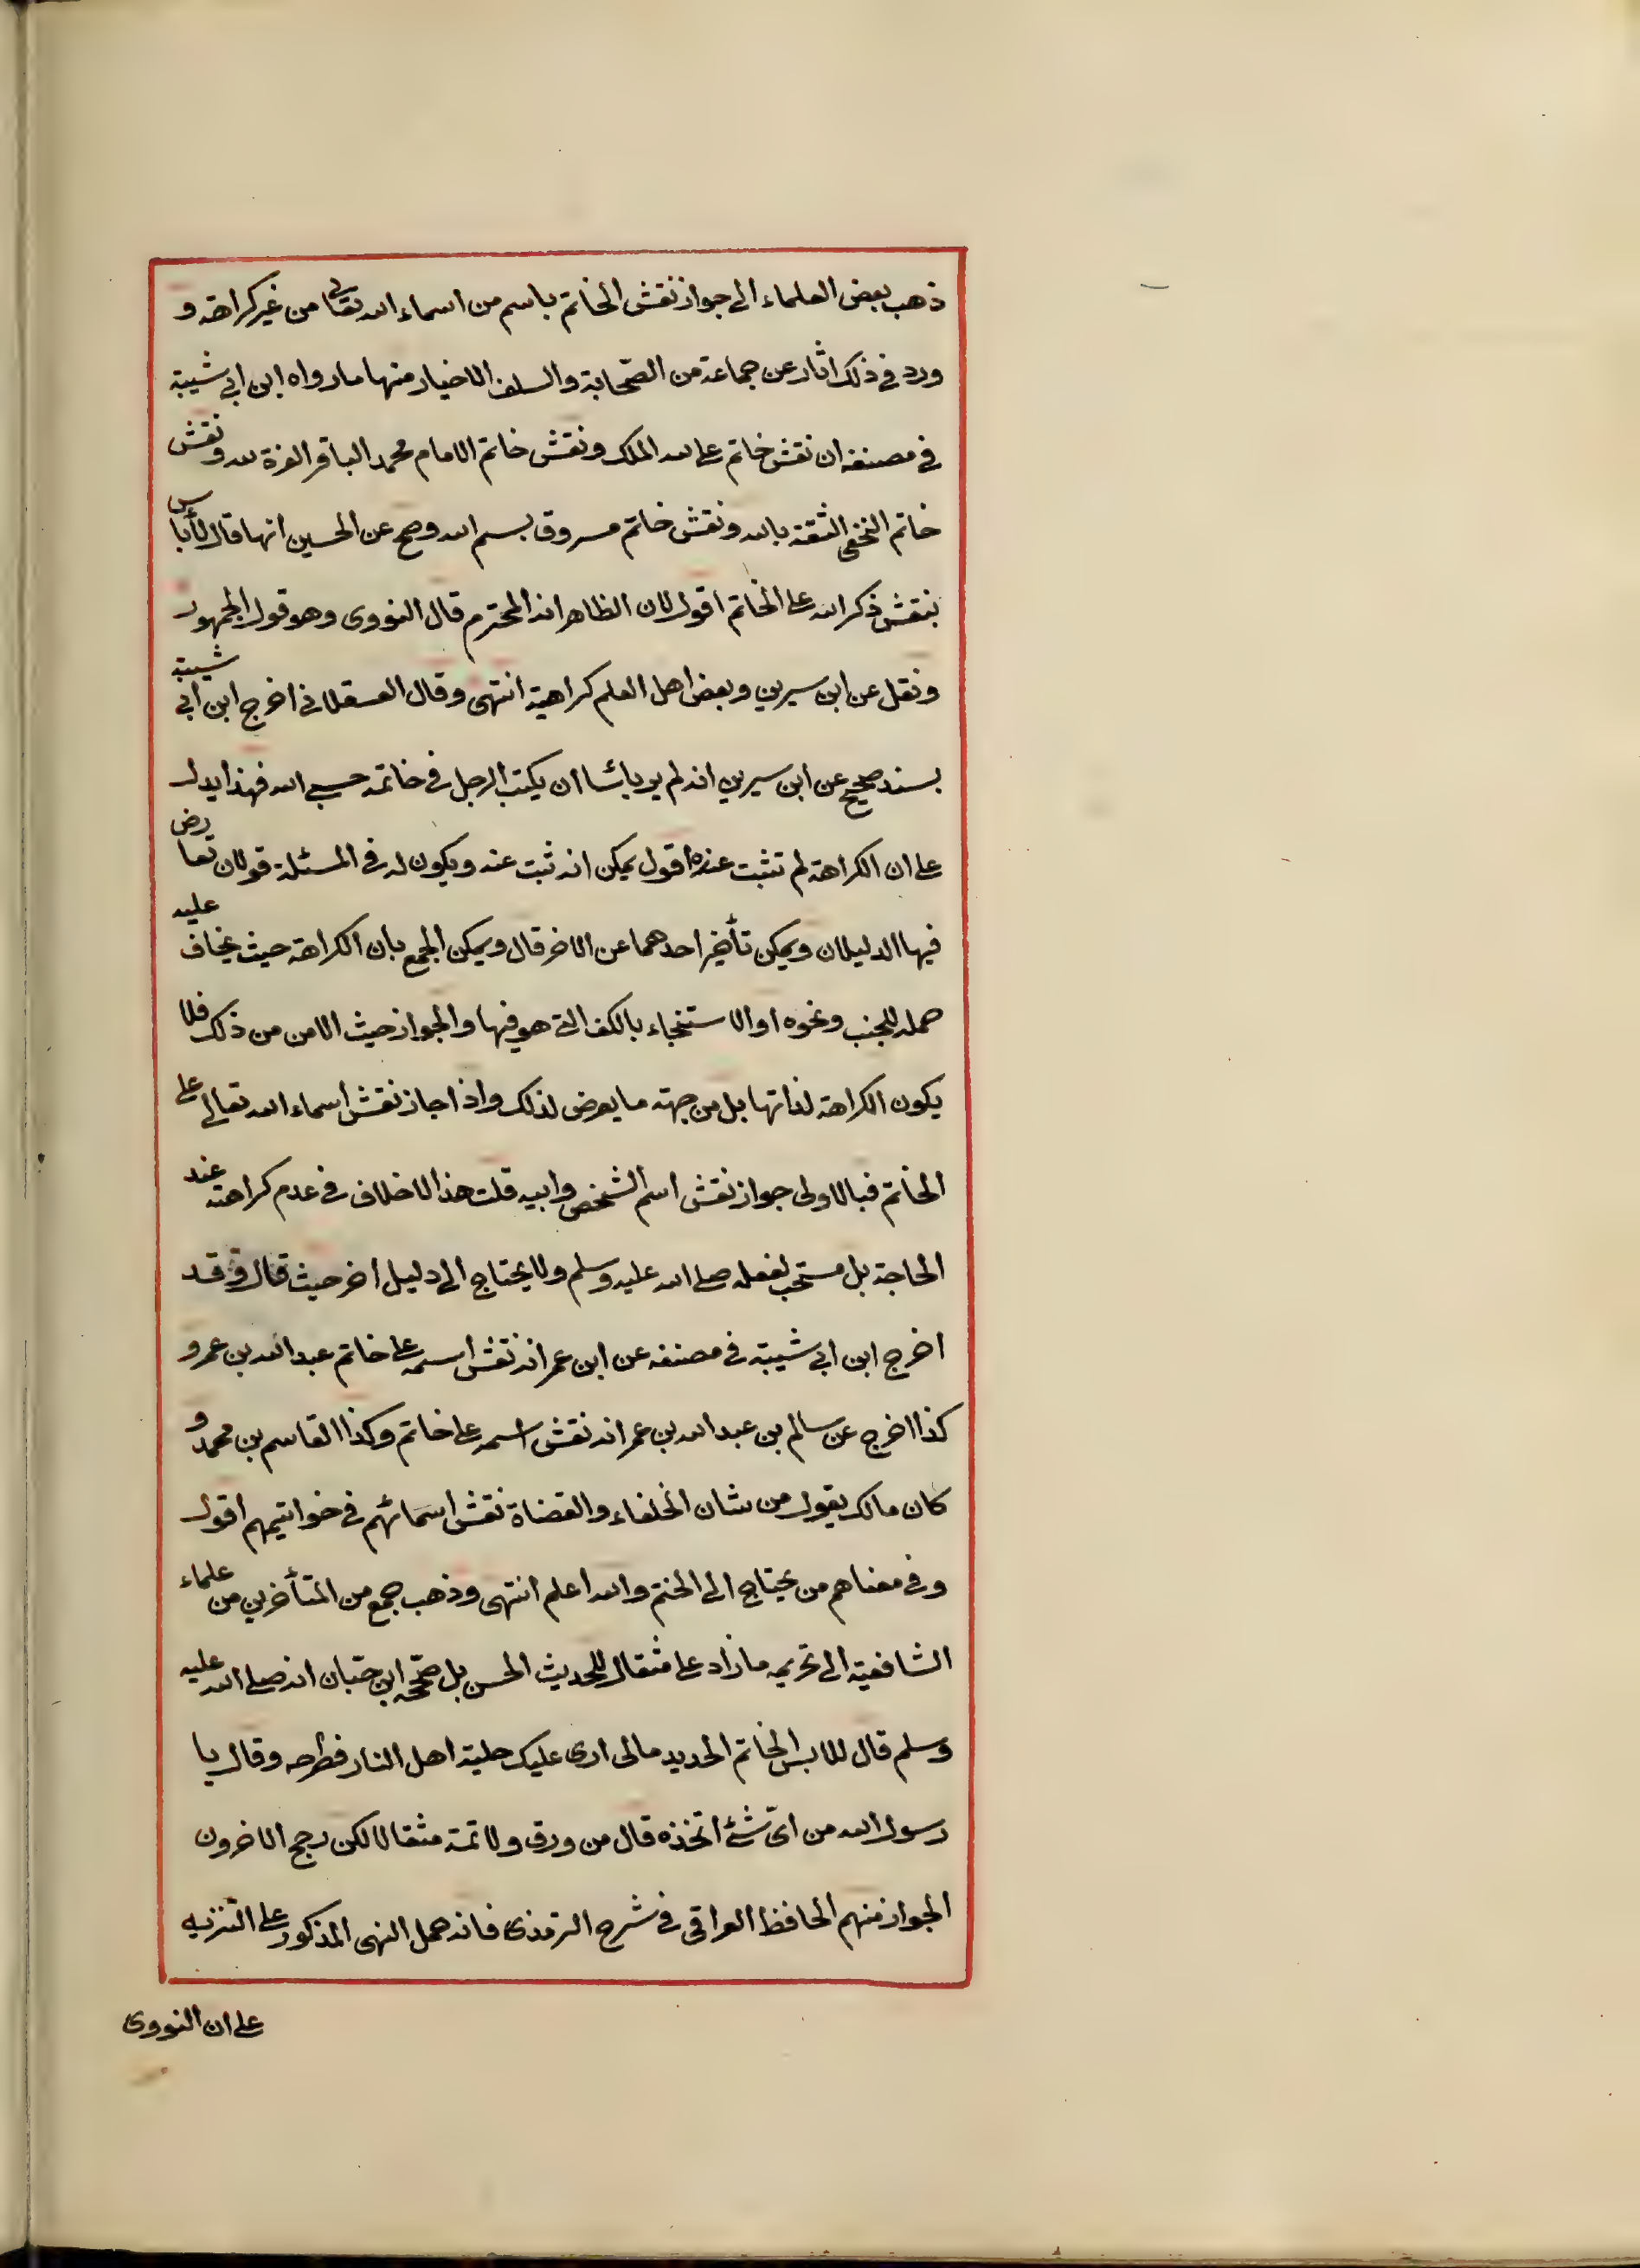 ذهب بعض العلماء الى جواز نقش الخاتم باسم من اسماء الله تعالى من غير كراهة و
ورد في ذلك اثار عن جماعة من الصّحابة والسلف الاخيار منها ما رواه ابن ابي شيبة
في مصنفه ان نقش خاتم على لله الملك ونقش خاتم الامام محمد الباقر العزة لله ونقش
خاتم النخعي الثقة بالله ونقش خاتم مسروق بسم الله وصح عن الحسين انها قال لا بأس
بنقش ذكر الله على الخاتم اقول لان الظاهر انه المحترم قال النووى وهو قول الجمهور
ونقل عن ابن سيرين وبعض اهل العلم كراهية انتهى وقال العسقلاني اخرج ابن ابي شيبة
بسند صحيح عن ابن سيرين انه لم ير بائسا ان يكتب الرجل في خاتمه حسبى الله فهذا يدل
على ان الكراهة لم تثبت عنده اقول يمكن انه ثبت عنه ويكون له في المسئلة قولان تعارض
فيها الدليلان ويمكن تأخير احدهما عن الاخر قال ويمكن الجمع بان الكراهة حيث يخاف عليه
حمله للجنب ونحوه او الاستنجاء بالكف التي هو فيها والجواز حيث الامن من ذلك فلا
يكون الكراهة لذاتها بل من جهة ما يعرض لذلك واذا جاز نقش اسماء الله تعالى على
الخاتم فبالاولى جواز نقش اسم الشخص وابيه قلت هذا لا خلاف في عدم كراهته عند
الحاجة بل مستحب لفعله صلى الله عليه وسلم ولا يحتاج الى دليل اخر حيث قال وقد
اخرج ابن ابي شيبة في مصنفه عن ابن عمر انه نقش اسمه على خاتم عبد الله بن عمر و
كذا اخرج عن سالم بن عبد الله بن عمر انه نقش اسمه على خاتم وكذا القاسم بن محمد و
كان مالك يقول من شان الخلفاء والقضاة نقش اسمائهم في خواتيمهم اقول
وفي معناهم من يحتاج الى الختم والله اعلم انتهى وذهب جمع من المتأخرين من علماء
الشافعية الى تحريم ما زاد على مثقال للحديث الحسن بل صحّحه ابن حبّان انه صلى الله عليه
وسلم قال للابس الخاتم الحديد مالى ارى عليك حلية اهل النار فطرحه وقال يا
رسول الله من اىّ شئ اتخذه قال من ورق ولا تمّه مثقالا لكن رجح الاخرون
الجواز منهم الحافظ العراقى في شرح الترمذى فانه حمل النهى المذكور على التنزيه
على ان النووى